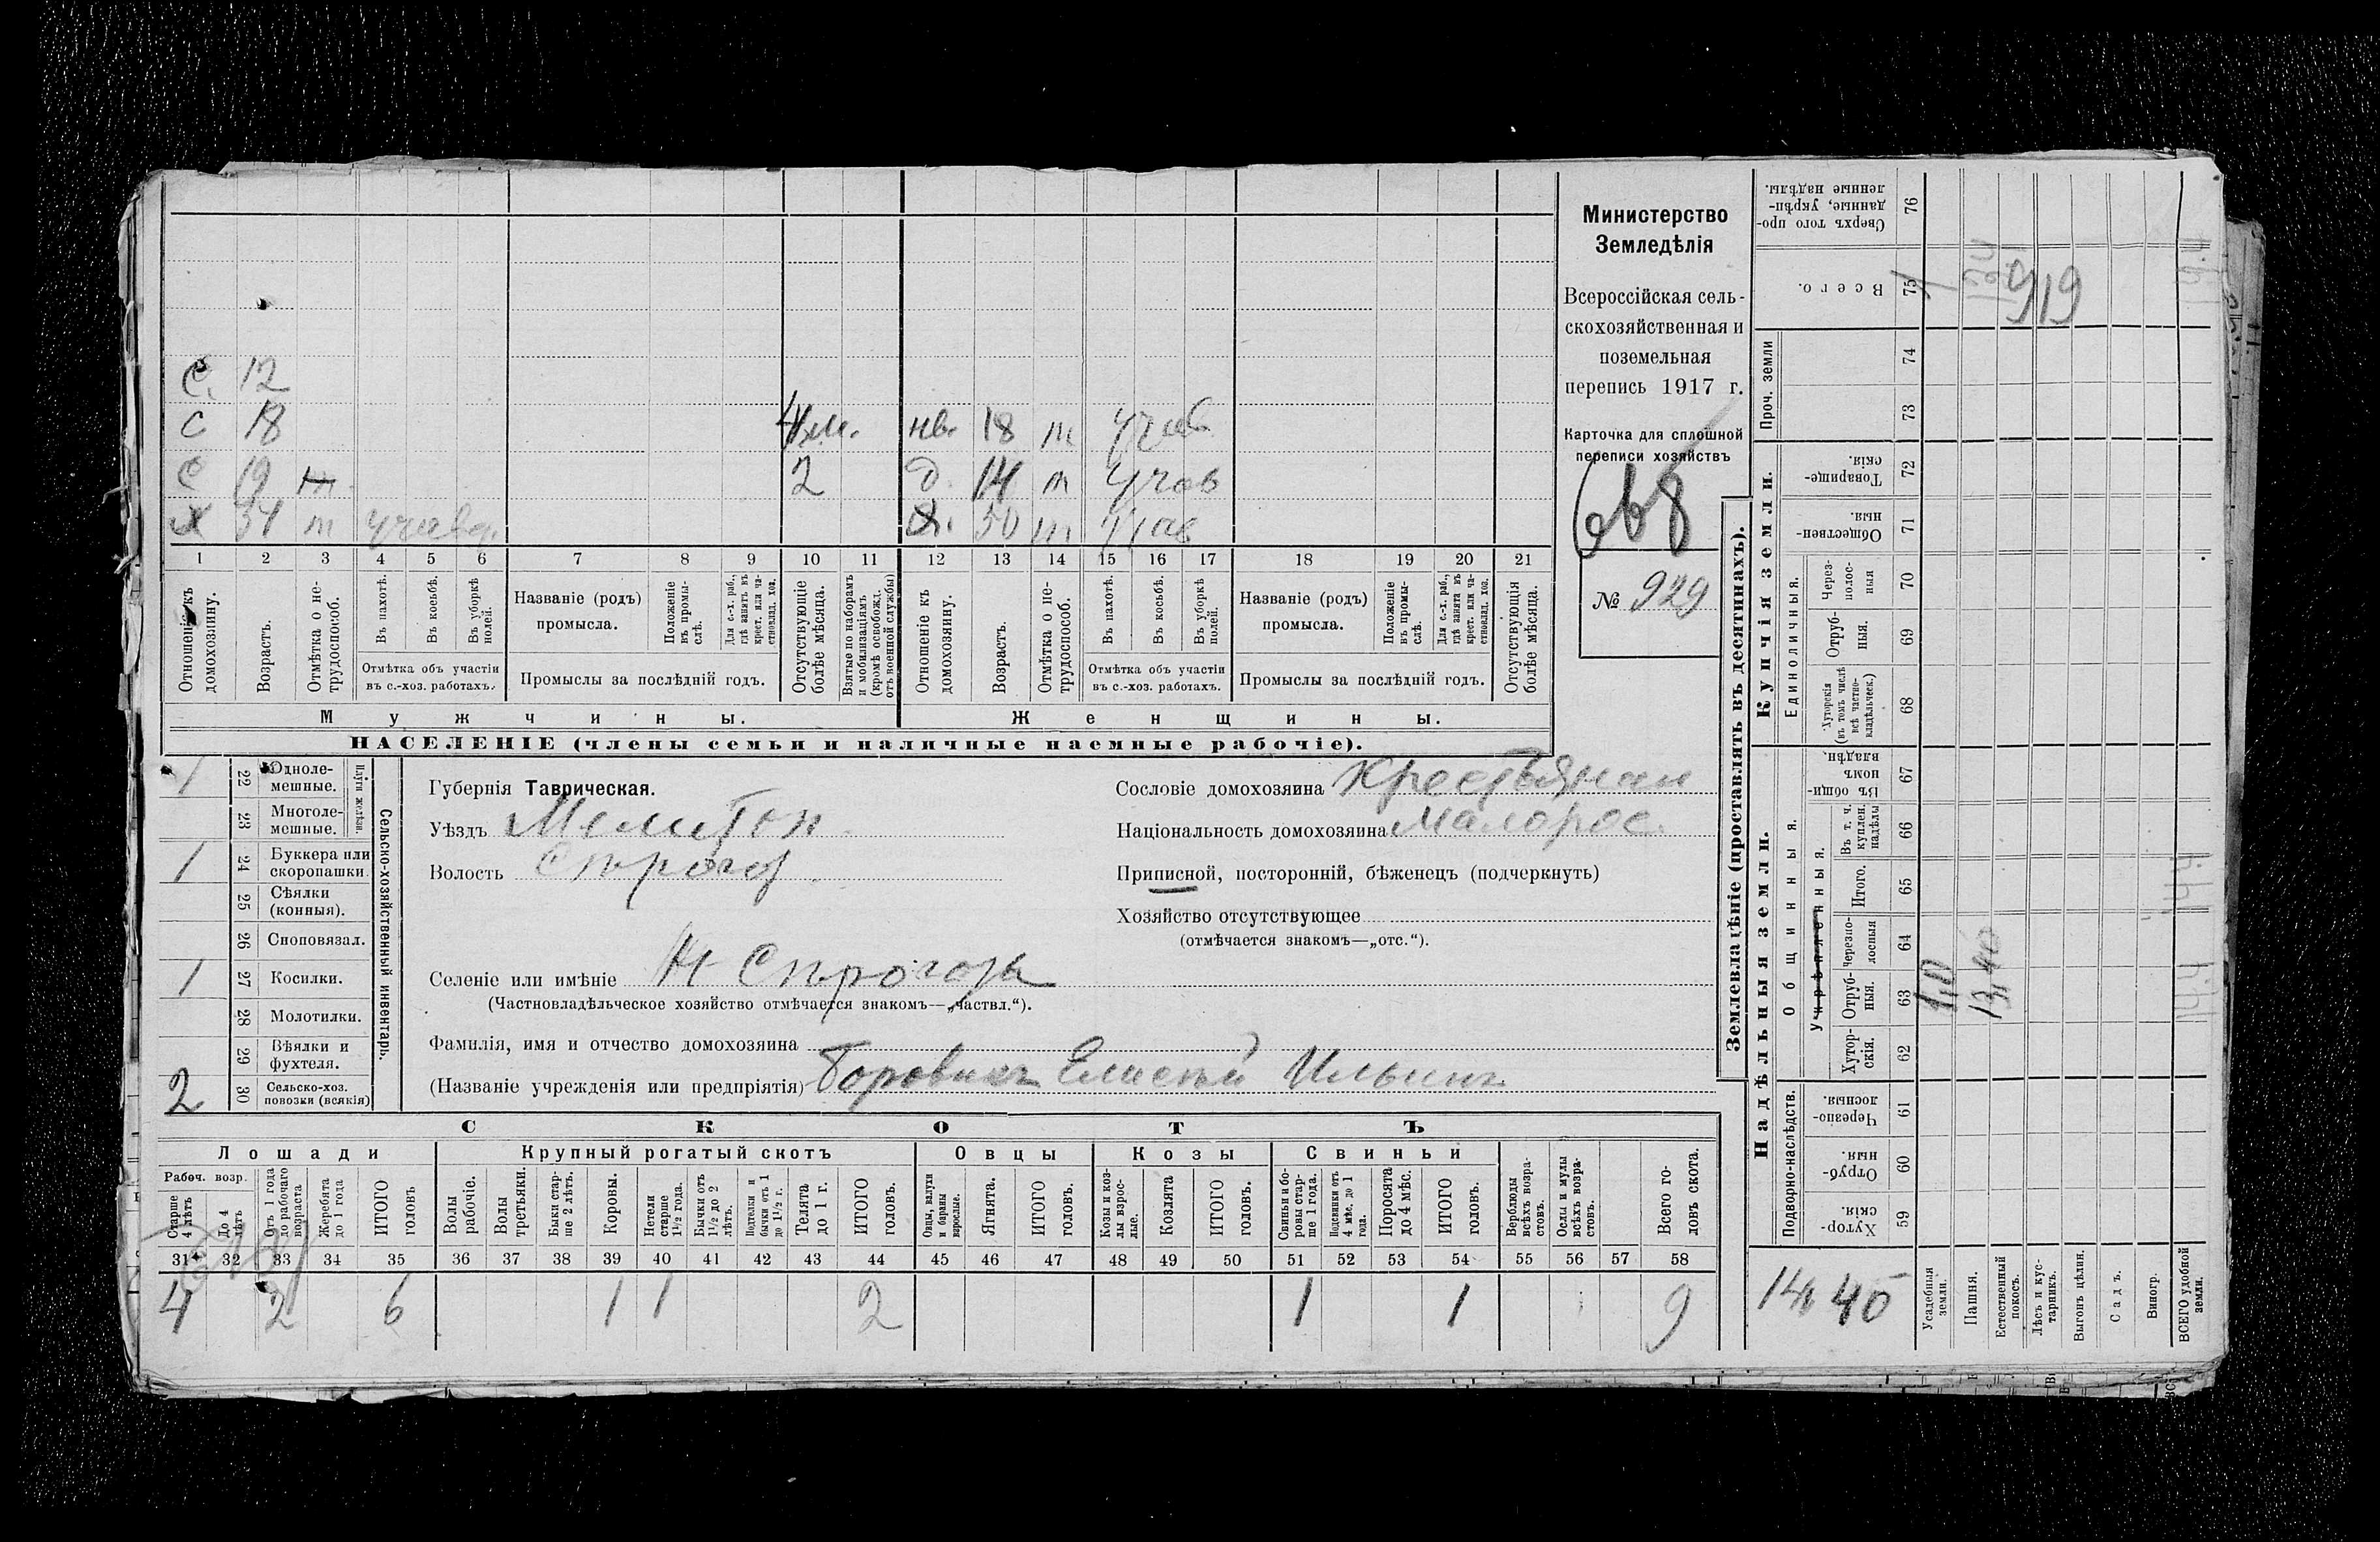 С. 12
С 18 4 м. нв. 18 т учав
С 19 т 2 д. 14 т учав
Х 54 т учавс. х. 50 т учав
1 2 3 4 5 6 7 8 9 10 11 12 13 14 15 16 17 18 19 20 21
Отношеніе къ домохозяину.
Возрастъ.
Отмѣтка о нетрудоспособ.
Въ пахотѣ.
Въ косьбѣ.
Въ уборкѣ полей.
Отмѣтка объ участіи
въ с.-хоз. работахъ.
Названіе (родъ)
промысла.
Положеніе въ промыслѣ.
Для с.-х. раб., гдѣ занятъ въ крест. или частновлад. хоз.
Промыслы за послѣдній годъ.
Отсутствующіе болѣе мѣсяца.
Взятые по наборамъ и мобилизаціямъ (кромѣ освобожд. отъ военной службы)
Отношеніе къ домохозяину.
Возрастъ.
Отмѣтка о нетрудоспособ.
Въ пахотѣ.
Въ косьбѣ.
Въ уборкѣ полей.
Отмѣтка объ участіи
въ с.-хоз. работахъ.
Названіе (родъ)
промысла.
Положеніе въ промыслѣ.
Для с.-х. раб., гдѣ занята въ крест. или частновлад. хоз.
Промыслы за послѣдній годъ.
Отсутствующія болѣе мѣсяца.
Мужчины. Женщины.
НАСЕЛЕНІЕ (члены семьи и наличные наемные рабочіе).
Министерство
Земледѣлія
Всероссійская сель-
скохозяйственная и
поземельная
перепись 1917 г.
Карточка для сплошной
переписи хозяйствъ
668
№ 929
Сельско-хозяйственный инвентарь.
Плуги желѣзн.
1 22 Одноле-
мешные.
23 Многоле-
мешные.
1 24 Буккера или
скоропашки.
25 Сѣялки
(конныя).
26 Сноповязал.
1 27 Косилки.
28 Молотилки.
29 Вѣялки и
фухтеля.
2 30 Сельско-хоз.
повозки (всякія)
Губернія Таврическая.
Уѣздъ Мелитоп.
Волость
Селеніе или имѣніе
(Частновладѣльческое хозяйство отмѣчается знакомъ—„частвл.“).
Фамилія, имя и отчество домохозяина
(Названіе учрежденія или предпріятія) Боровикъ Елисей Ильинъ
Сословіе домохозяина Крестьянин
Національность домохозяина Малорос.
Приписной, посторонній, бѣженецъ (подчеркнуть)
Хозяйство отсутствующее
(отмѣчается знакомъ—„отс.“).
СКОТЪ
Лошади Крупный рогатый скотъ Овцы Козы Свиньи
Рабоч. возр.
Старше 4 лѣтъ
До 4 лѣтъ
Отъ 1 года до рабочаго возраста
Жеребята до 1 года
ИТОГО головъ
Волы рабочіе.
Волы третьяки.
Быки старше 2 лѣтъ.
Коровы.
Нетели старше 1½ года.
Бычки отъ 1½ до 2 лѣтъ.
Подтелки и бычки отъ 1 до 1½ г.
Телята до 1 г.
ИТОГО головъ.
Овцы, валухи и бараны взрослые.
Ягнята.
ИТОГО головъ.
Козы и козлы взрослые.
Козлята
ИТОГО головъ.
Свиньи и боровы старше 1 года.
Подсвинки отъ 4 мѣс. до 1 года.
Поросята до 4 мѣс.
ИТОГО головъ.
Верблюды всѣхъ возрастовъ.
Ослы и мулы всѣхъ возрастовъ.
Всего головъ скота.
31 32 33 34 35 36 37 38 39 40 41 42 43 44 45 46 47 48 49 50 51 52 53 54 55 56 57 58
4 2 6 1 1 2 1 1 9
Землевладѣніе (проставлять въ десятинахъ).
Надѣльныя земли. Купчія земли. Проч. земли
Подворно-наслѣдств.
Общинныя.
Укрѣпленныя.
Единоличныя.
59 Хутор-
скія.
60 Отруб-
ныя.
61 Черезпо-
лосныя.
62 Хутор-
скія.
63 Отруб-
ныя.
64 Черезпо-
лосныя
65 Итого.
66 Въ т. ч.
куплен.
надѣлы
67 Въ общин-
номъ
владѣн.
68 Хуторскія
(въ томъ числѣ
всѣ частно-
владѣльческ.)
69 Отруб-
ныя.
70 Через-
полос-
ныя
71 Обществен-
ныя.
72 Товарище-
скія.
73
74
75 Всего.
76 Сверхъ того про-
данные, укрѣп-
ленные надѣлы.
Усадебныя земли. 1,0
Пашня. 13,40
Естественный покосъ.
Лѣсъ и кустарникъ.
Выгонъ цѣлин.
Садъ.
Виногр.
ВСЕГО удобной земли. 14,4
14,40
919